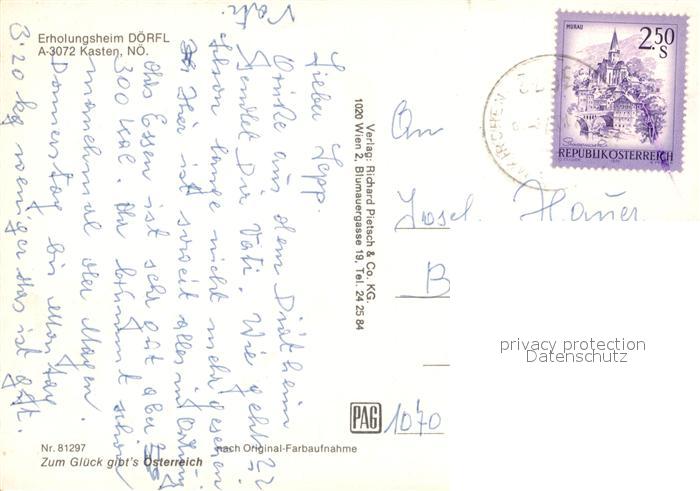 Erholungsheim DÖRFL
A-3072 Kasten, NÖ.
Lieber Sepp.
Grüße aus dem Diätheim
sendet Dir Vati. Wie geht's?
schon lange nicht mehr gesehen
Hier ist soweit alles in Ordnung
das Essen ist sehr gut aber
300 Kal. Da brummt schon
manchmal der Magen.
Donnerstag bis Montag
3·20 kg weniger das ist gut.
Vati.
Verlag: Richard Pietsch & Co. KG.
1020 Wien 2, Blumauergasse 19, Tel. 24 25 84
MURAU
2.50
S
REPUBLIK ÖSTERREICH
An
Josef Hauer
B
privacy protection
Datenschutz
PAG
1070
Nr. 81297
nach Original-Farbaufnahme
Zum Glück gibt's Österreich